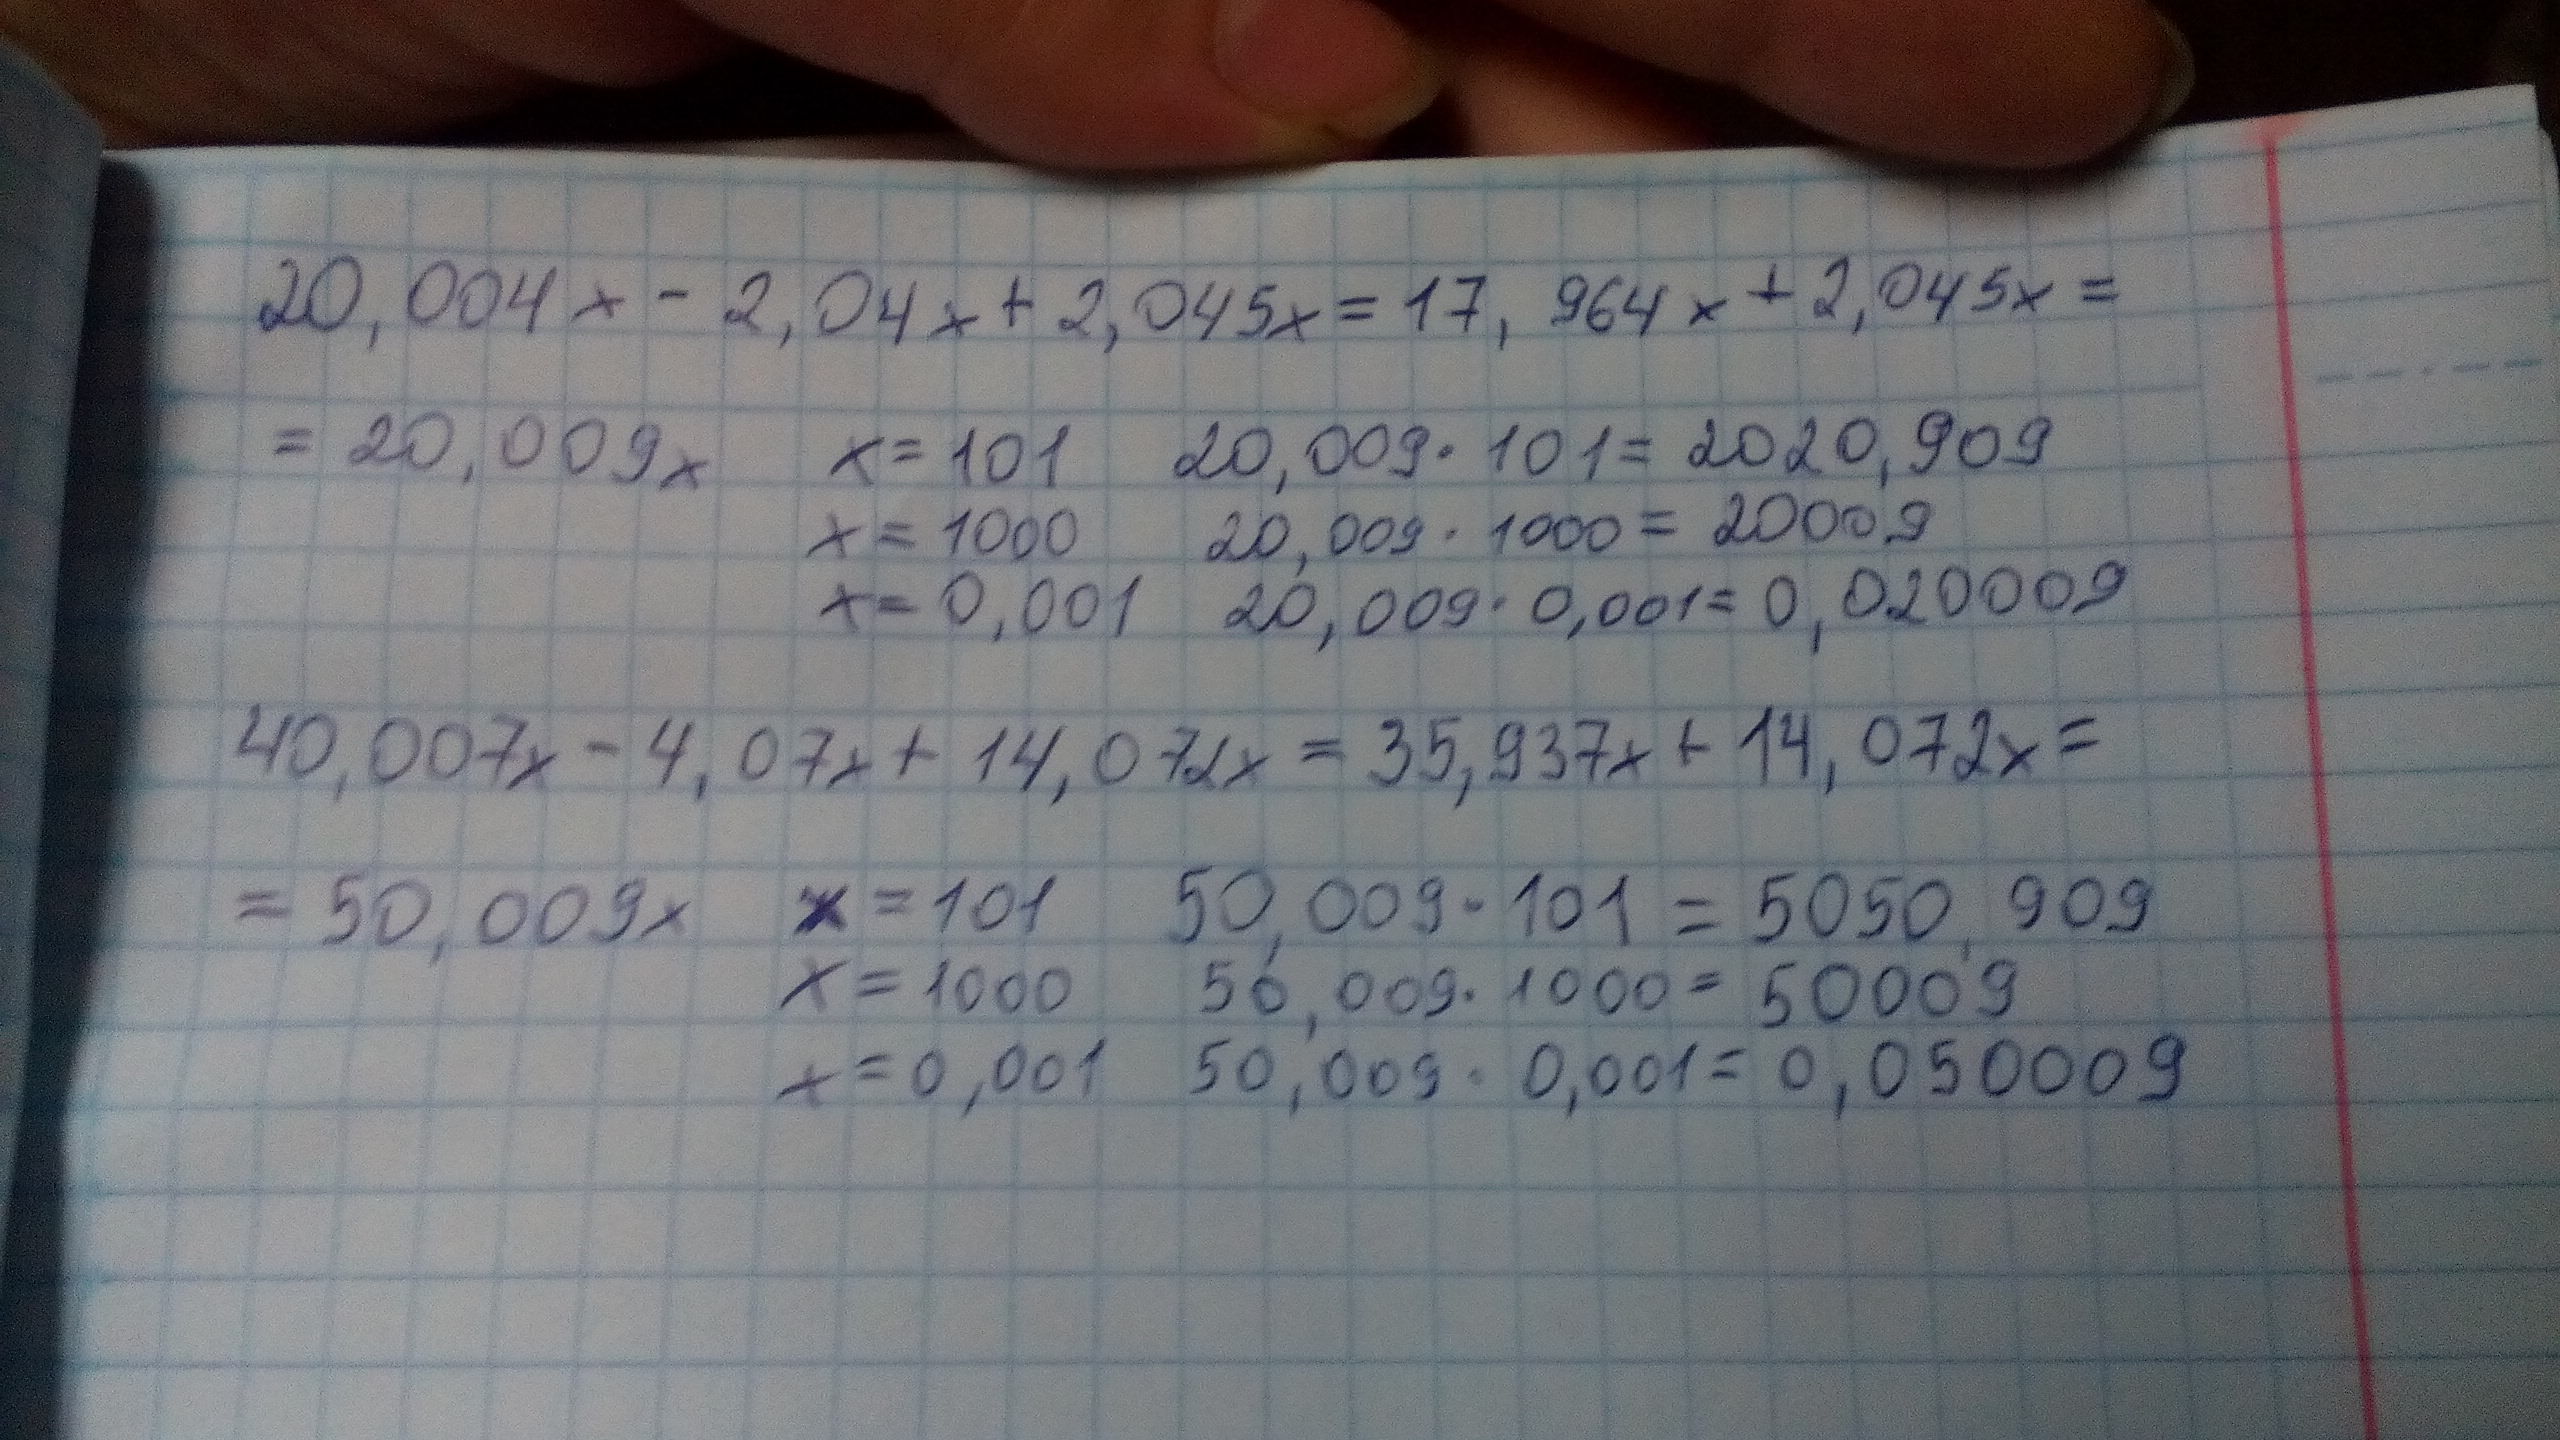 20,004x - 2,04x + 2,045x = 17,964x + 2,045x =
= 20,009x x = 101 20,009 · 101 = 2020,909
x = 1000 20,009 · 1000 = 20009
x = 0,001 20,009 · 0,001 = 0,020009
40,007x - 4,07x + 14,072x = 35,937x + 14,072x =
= 50,009x x = 101 50,009 · 101 = 5050,909
x = 1000 50,009 · 1000 = 50009
x = 0,001 50,009 · 0,001 = 0,050009